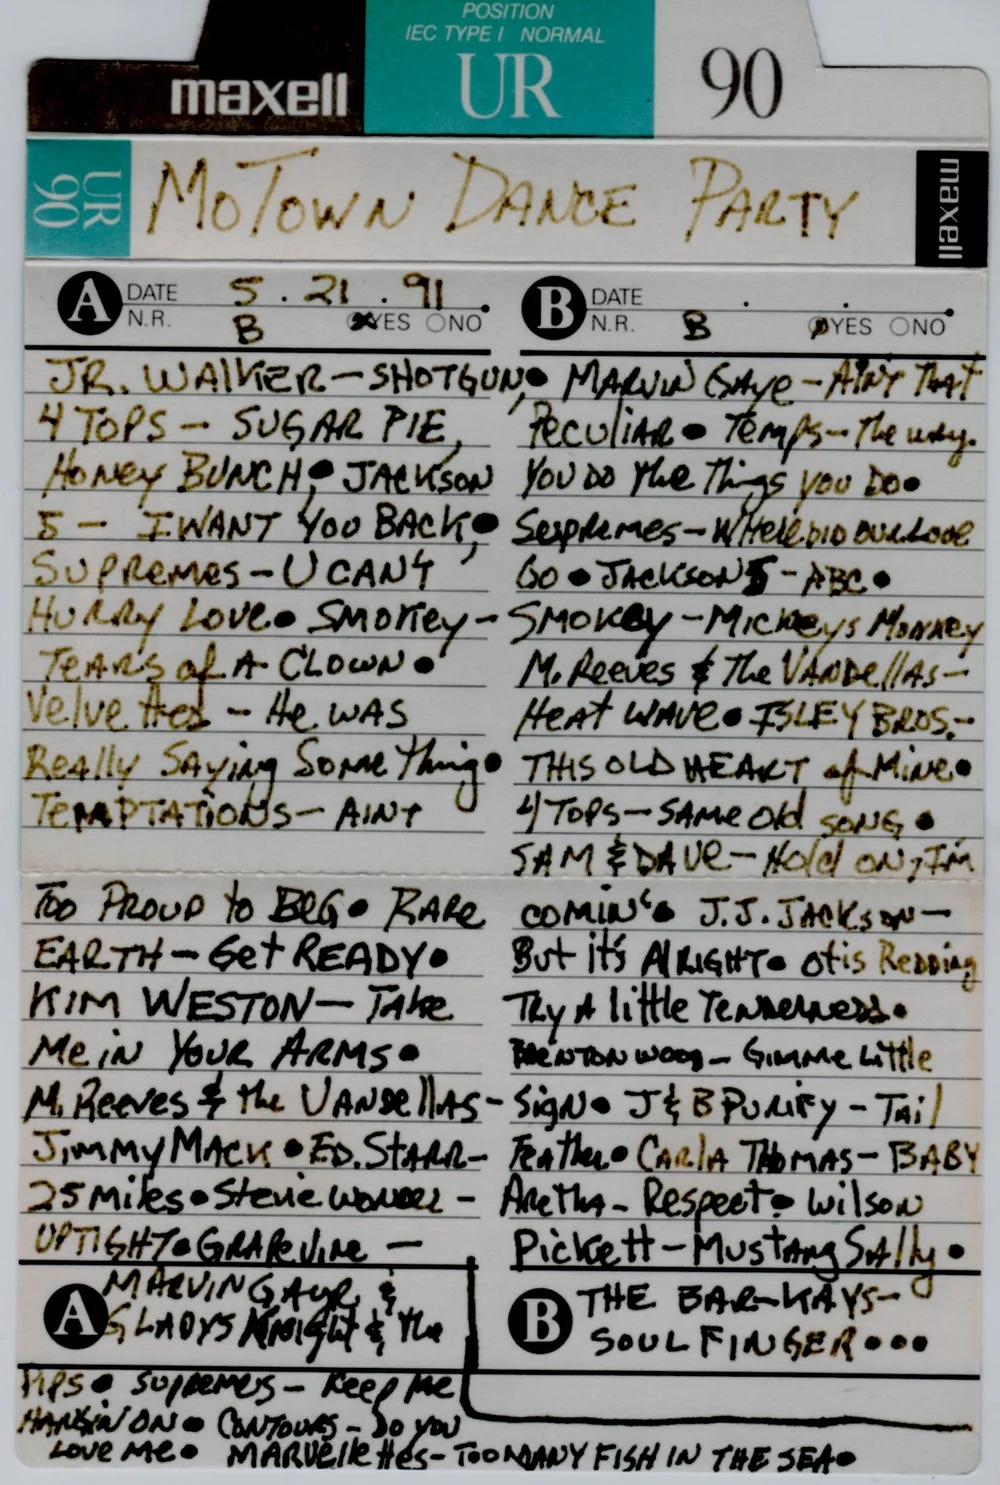 POSITION
IEC TYPE I NORMAL
maxell UR 90
UR 90
MOTOWN DANCE PARTY
maxell
A DATE 5.21.91
N.R. B YES NO
JR. WALKER - SHOTGUN,
4 TOPS - SUGAR PIE,
HONEY BUNCH, • JACKSON
5 - I WANT YOU BACK, •
SUPREMES - U CAN'T
HURRY LOVE • SMOKEY -
TEARS of A CLOWN •
Velvettes - He WAS
Really Saying Something •
TEMPTATIONS - AINT
Too PROUD to BEG • RARE
EARTH - Get READY •
KIM WESTON - Take
Me in YOUR ARMS •
M. Reeves & the VANDellAS -
Jimmy MACK • ED. STARR -
25 Miles • Stevie WONDER -
UPTIGHT • GRAPEVINE -
A MARVIN GAYE &
GLADYS Knight & the
PIPS • SUPREMES - Keep Me
HANGIN' ON • CONTOURS - Do you
LOVE Me • MARVElettes - TOO MANY FISH IN THE SEA •
B DATE . .
N.R. B YES NO
• MARVIN GAYE - AIN'T THAT
PECULIAR • Temps - The way
YOU DO the Things you DO •
Supremes - WHERE DID OUR LOVE
GO • JACKSON 5 - ABC •
SMOKEY - Mickeys MONKEY
M. Reeves & The VANDellAS -
HEAT WAVE • ISLEY BROS. -
THIS OLD HEART of Mine •
4 TOPS - SAME Old SONG •
SAM & DAVE - Hold ON, I'm
comin' • J.J. JACKSON -
But it's AlRIGHT • Otis Redding
Try A little TENDERNESS •
BRENTON WOOD - Gimme Little
Sign • J & B PURIFY - Tail
Feather • CARlA THOMAS - BABY
Aretha - Respect • Wilson
Pickett - Mustang Sally •
B THE BAR-KAYS -
SOUL FINGER • • •